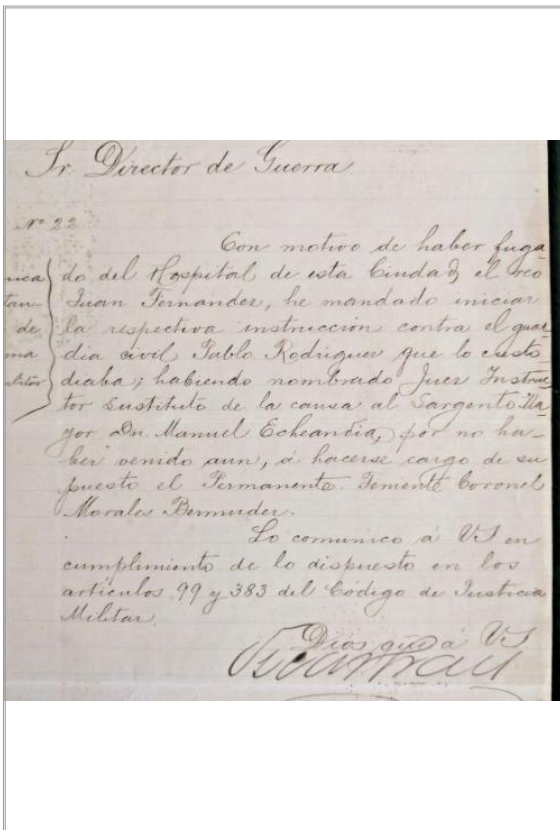 Sr. Director de Guerra.
Nº 22
Con motivo de haber fuga
nea do del Hospital de esta Ciudad el reo
tan- Juan Fernandez, he mandado iniciar
de la respectiva instruccion contra el guar
ma dia civil Pablo Rodriguez que lo custo
diaba; habiendo nombrado Juez Instruc
tor sustituto de la causa al Sargento Ma
yor Dn. Manuel Echeandia, por no ha-
ber venido aun, á hacerse cargo de su
puesto el Permanente Teniente Coronel
Morales Bermudez.
Lo comunico á VS en
cumplimiento de lo dispuesto en los
articulos 99 y 383 del Código de Justicia
Militar.
Dios gue á VS